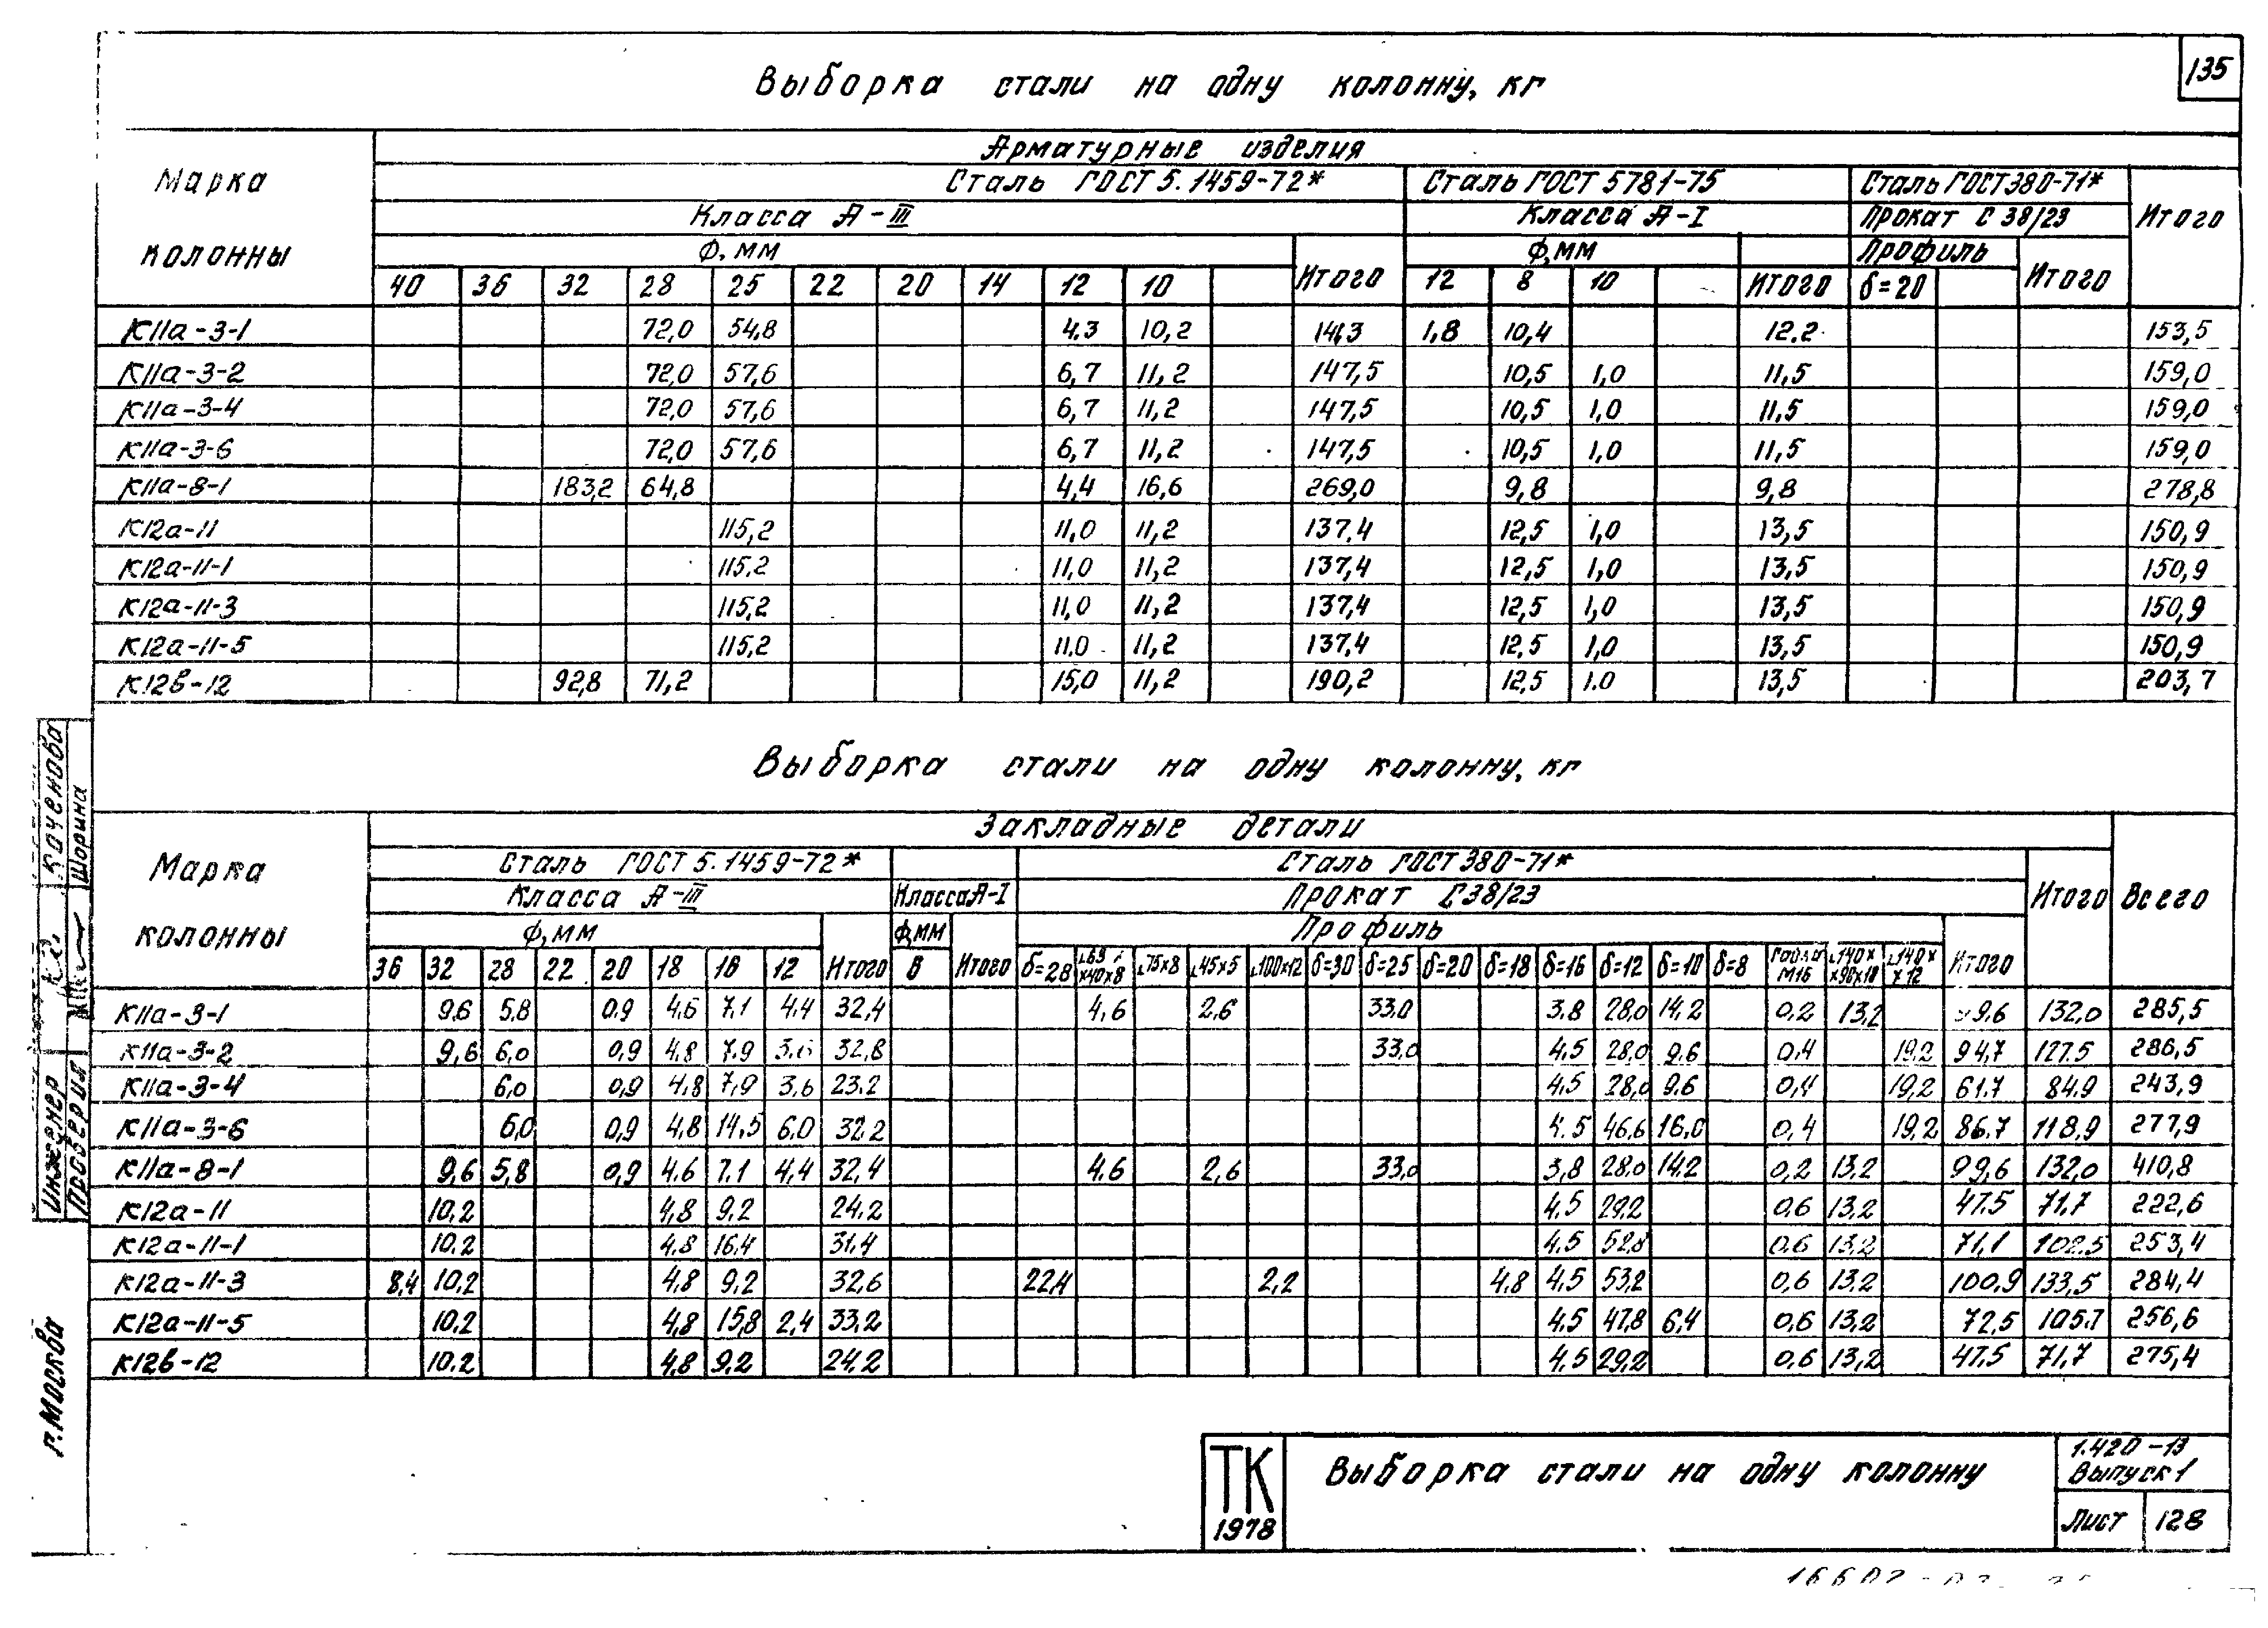 135
Выборка стали на одну колонну, кг
Марка колонны
Арматурные изделия
Сталь ГОСТ 5.1459-72* Сталь ГОСТ 5781-75 Сталь ГОСТ 380-71* Итого
Класса А-III Класса А-I Прокат С 38/23
Ф, мм Итого Ф, мм Итого Профиль Итого
40 36 32 28 25 22 20 14 12 10 12 8 10 δ=20
К11а-3-1 72,0 54,8 4,3 10,2 141,3 1,8 10,4 12,2 153,5
К11а-3-2 72,0 57,6 6,7 11,2 147,5 10,5 1,0 11,5 159,0
К11а-3-4 72,0 57,6 6,7 11,2 147,5 10,5 1,0 11,5 159,0
К11а-3-6 72,0 57,6 6,7 11,2 147,5 10,5 1,0 11,5 159,0
К11а-8-1 183,2 64,8 4,4 16,6 269,0 9,8 9,8 278,8
К12а-11 115,2 11,0 11,2 137,4 12,5 1,0 13,5 150,9
К12а-11-1 115,2 11,0 11,2 137,4 12,5 1,0 13,5 150,9
К12а-11-3 115,2 11,0 11,2 137,4 12,5 1,0 13,5 150,9
К12а-11-5 115,2 11,0 11,2 137,4 12,5 1,0 13,5 150,9
К12в-12 92,8 71,2 15,0 11,2 190,2 12,5 1.0 13,5 203,7
Выборка стали на одну колонну, кг
Марка колонны
Закладные детали
Сталь ГОСТ 5.1459-72* Сталь ГОСТ 380-71* Итого Всего
Класса А-III Класса А-I Прокат С38/23
Ф, мм Ф, мм Профиль
36 32 28 22 20 18 16 12 Итого 8 Итого δ=28 ∟63×40×8 ∟75×8 ∟45×5 ∟100×12 δ=30 δ=25 δ=20 δ=18 δ=16 δ=12 δ=10 δ=8 М16 ∟140××90×10 ∟140××12 Итого
К11а-3-1 9,6 5,8 0,9 4,6 7,1 4,4 32,4 4,6 2,6 33,0 3,8 28,0 14,2 0,2 13,2 99,6 132,0 285,5
К11а-3-2 9,6 6,0 0,9 4,8 7,9 3,6 32,8 33,0 4,5 28,0 9,6 0,4 19,2 94,7 127,5 286,5
К11а-3-4 6,0 0,9 4,8 7,9 3,6 23,2 4,5 28,0 9,6 0,4 19,2 61,7 84,9 243,9
К11а-3-6 6,0 0,9 4,8 14,5 6,0 32,2 4,5 46,6 16,0 0,4 19,2 86,7 118,9 277,9
К11а-8-1 9,6 5,8 0,9 4,6 7,1 4,4 32,4 4,6 2,6 33,0 3,8 28,0 14,2 0,2 13,2 99,6 132,0 410,8
К12а-11 10,2 4,8 9,2 24,2 4,5 29,2 0,6 13,2 47,5 71,7 222,6
К12а-11-1 10,2 4,8 16,4 31,4 4,5 52,8 0,6 13,2 71,1 102,5 253,4
К12а-11-3 8,4 10,2 4,8 9,2 32,6 22,4 2,2 4,8 4,5 53,2 0,6 13,2 100,9 133,5 284,4
К12а-11-5 10,2 4,8 15,8 2,4 33,2 4,5 47,8 6,4 0,6 13,2 72,5 105,7 256,6
К12в-12 10,2 4,8 9,2 24,2 4,5 29,2 0,6 13,2 47,5 71,7 275,4
Инженер Коченова
Проверил Шорина
г. Москва
ТК
1978
Выборка стали на одну колонну
1.420-13
Выпуск 1
Лист 128